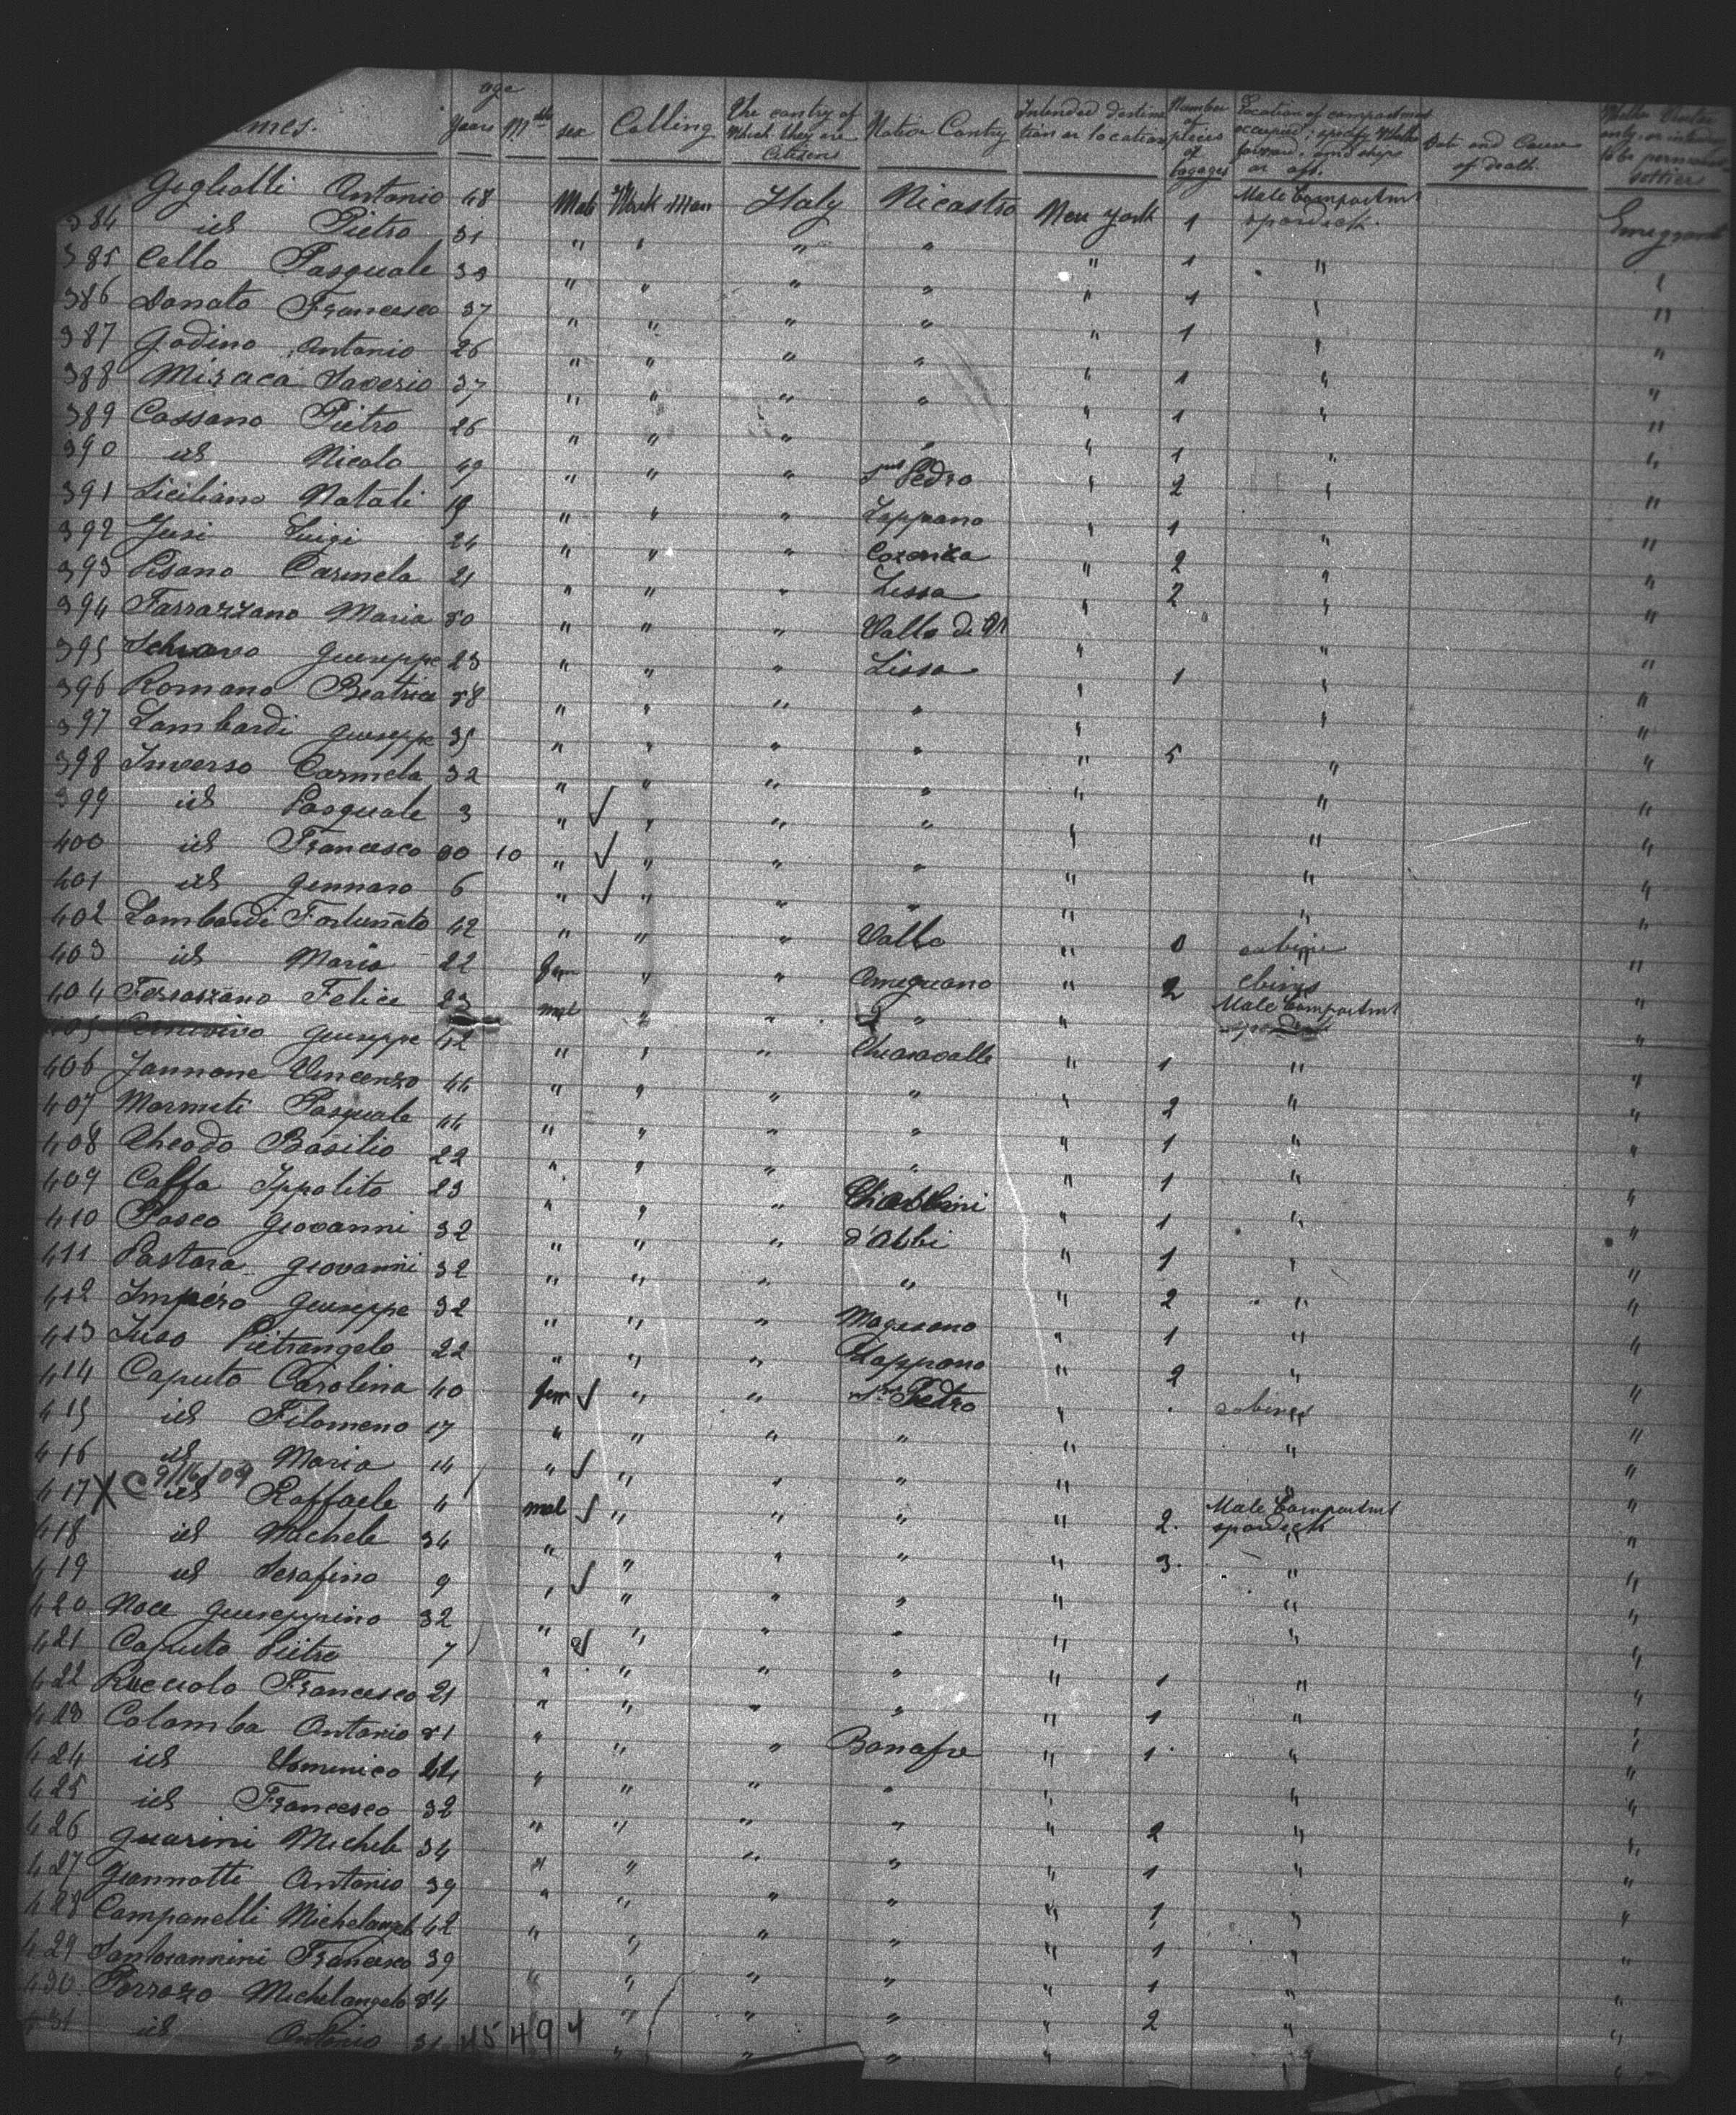 age
Years Mths sex Calling The contry of Which they are Citesens Nativ Contry Intended destination or location Number of pieces of bagages Location of compartment occupied; specify Whether forward. amidships or aft. Date and Cause of death.
Gigliotti Antonio 48 Male Work man Italy Nicastro New york 1 Male Compartmt Emigrant
384 id Pietro 31 " " " " " 1 "
385 Cello Pasquale 33 " " " " " 1
386 Donato Francesco 37 " " " " " 1
387 Godino Antonio 26 " " " " " 1
388 Miraca Saverio 37 " " " " " 1
389 Cassano Pietro 26 " " " " " 1
390 id Nicolo 49 " " " Pedro " 2
391 Siciliano Natali 19 " " " Zappano " 1
392 Jusi Luigi 24 " " " Cosenza " 2
393 Pisano Carmela 21 " " " Lissa " 2
394 Farrazzano Maria 30 " " " Vallo di "
395 Schiavo Giuseppe 23 " " " Lissa " 1
396 Romano Beatrice 38 " " " " "
397 Lombardi Giuseppe 35 " " " " " 5
398 Inverso Carmela 32 " " " " "
399 id Pasquale 3 " " " " "
400 id Francesco 00 10 " " " " "
401 id Gennaro 6 " " " " "
402 Lombardi Fortunato 42 " " " Vallo " 0
403 id Maria 22 fem " " Omignano " 2
404 Ferrazzano Felice 23 mal " " " " Male Compartmt
405 Giuseppe 42 " " " Chiaravalle " 1 "
406 Jannone Vincenzo 44 " " " " " 2 "
407 Marmiti Pasquale 44 " " " " " 1 "
408 Theodo Basilio 22 " " " " " 1 "
409 Caffa Ippolito 23 " " " " 1 "
410 Pasco Giovanni 32 " " " d'Albi " 1 "
411 Pastora Giovanni 32 " " " " " 2 "
412 Impero Giuseppe 32 " " " Magisano " 1 "
413 Juso Pietrangelo 22 " " " Zappano " 2 "
414 Caputo Carolina 40 fem " " Pedro " cabines
415 id Filomeno 17 " " " " " "
416 id Maria 14 " " " " "
417 X C 9/16/09 id Raffaele 4 mal " " " " 2. Male Compartmt
418 id Michele 34 " " " " " 3. "
419 id Serafino 9 " " " " " "
420 Noce Giuseppino 32 " " " " " "
421 Caputo Pietro 7 " " " " " 1 "
422 Rucciolo Francesco 21 " " " " " 1 "
423 Colomba Antonio 31 " " " Bonafro " 1 "
424 id Domenico 44 " " " " " "
425 id Francesco 32 " " " " " 2 "
426 Guarini Michele 34 " " " " " 1 "
427 Giannotti Antonio 39 " " " " " 1 "
428 Campanelli Michelangelo 42 " " " " " 1 "
429 Santoiannini Francesco 39 " " " " " 1 "
430 Porrazo Michelangelo 34 " " " " " 2 "
431 id Antonio 31 " " " " "